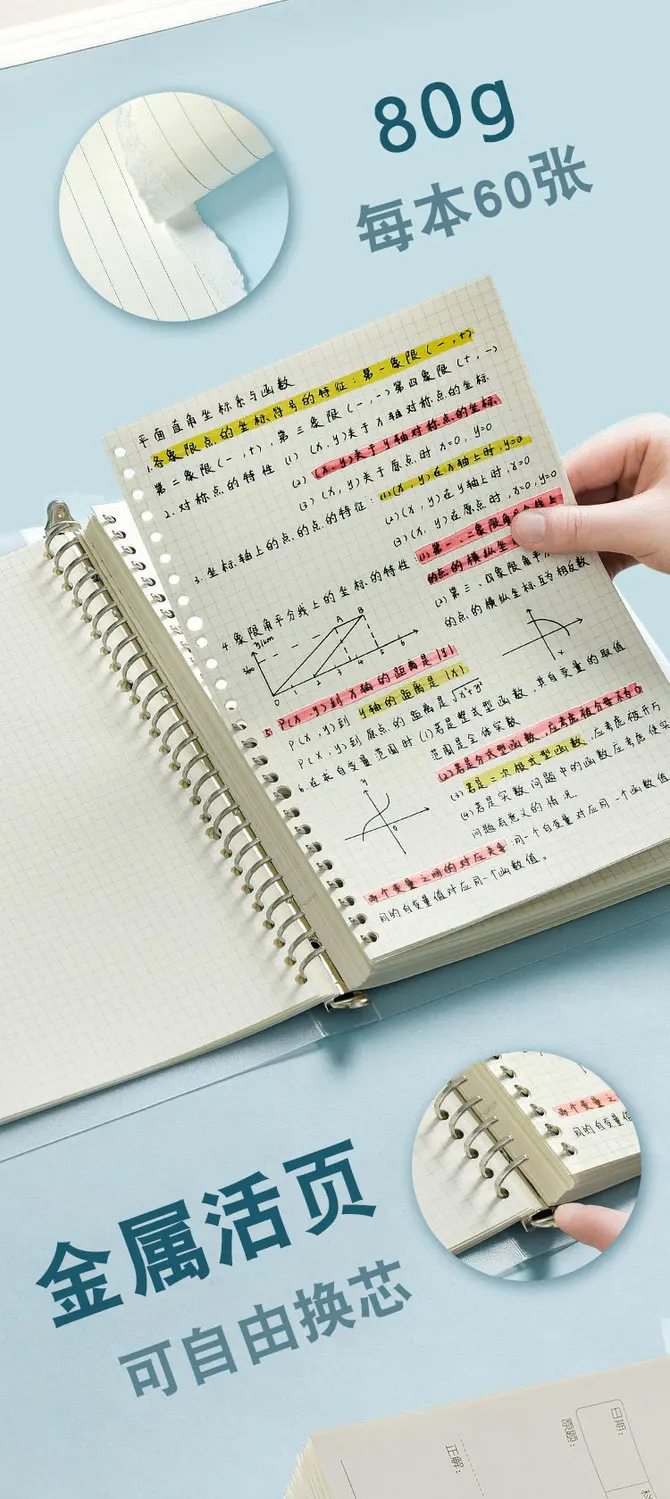 80g
每本60张
平面直角坐标系与函数
1.各象限点的坐标符号的特征:第一象限(-,+)
第二象限(-,+),第三象限(-,-)第四象限(+,-)
2.对称点的特性 (1) (x,y)关于x轴对称点的坐标
(2) (x,y)关于y轴对称点的坐标
(3) (x,y)关于原点时 x=0, y=0
3.坐标轴上的点的点的特征:(1)(x,y)在x轴上时,y=0
(2)(x,y)在y轴上时,x=0
(3)(x,y)在原点时,x=0,y=0
4.象限角平分线上的坐标的特性 (1)第一、三象限角
的点的横纵坐
(2)第三、四象限角平
的点的横纵坐标互为相反数
A B
0 1 2 3 4 5 6
5.P(x,y)到x轴的距离是|y|
P(x,y)到y轴的距离是|x|
P(x,y)到原点的距离是√x²+y²
6.在求自变量范围时(1)若是整式型函数,其自变量的取值
范围是全体实数
(2)若是分式型函数,应考虑使分母不为0
(3)若是二次根式型函数,应考虑使开方
(4)若是实数问题中的函数应考虑使实
问题有意义的情况
y
0
两个变量之间的对应关系:同一个自变量对应用一个函数值
同的自变量值对应用一个函数值。
两个变量之
同的自变量值
金属活页
可自由换芯
日期:
原题:
正解: